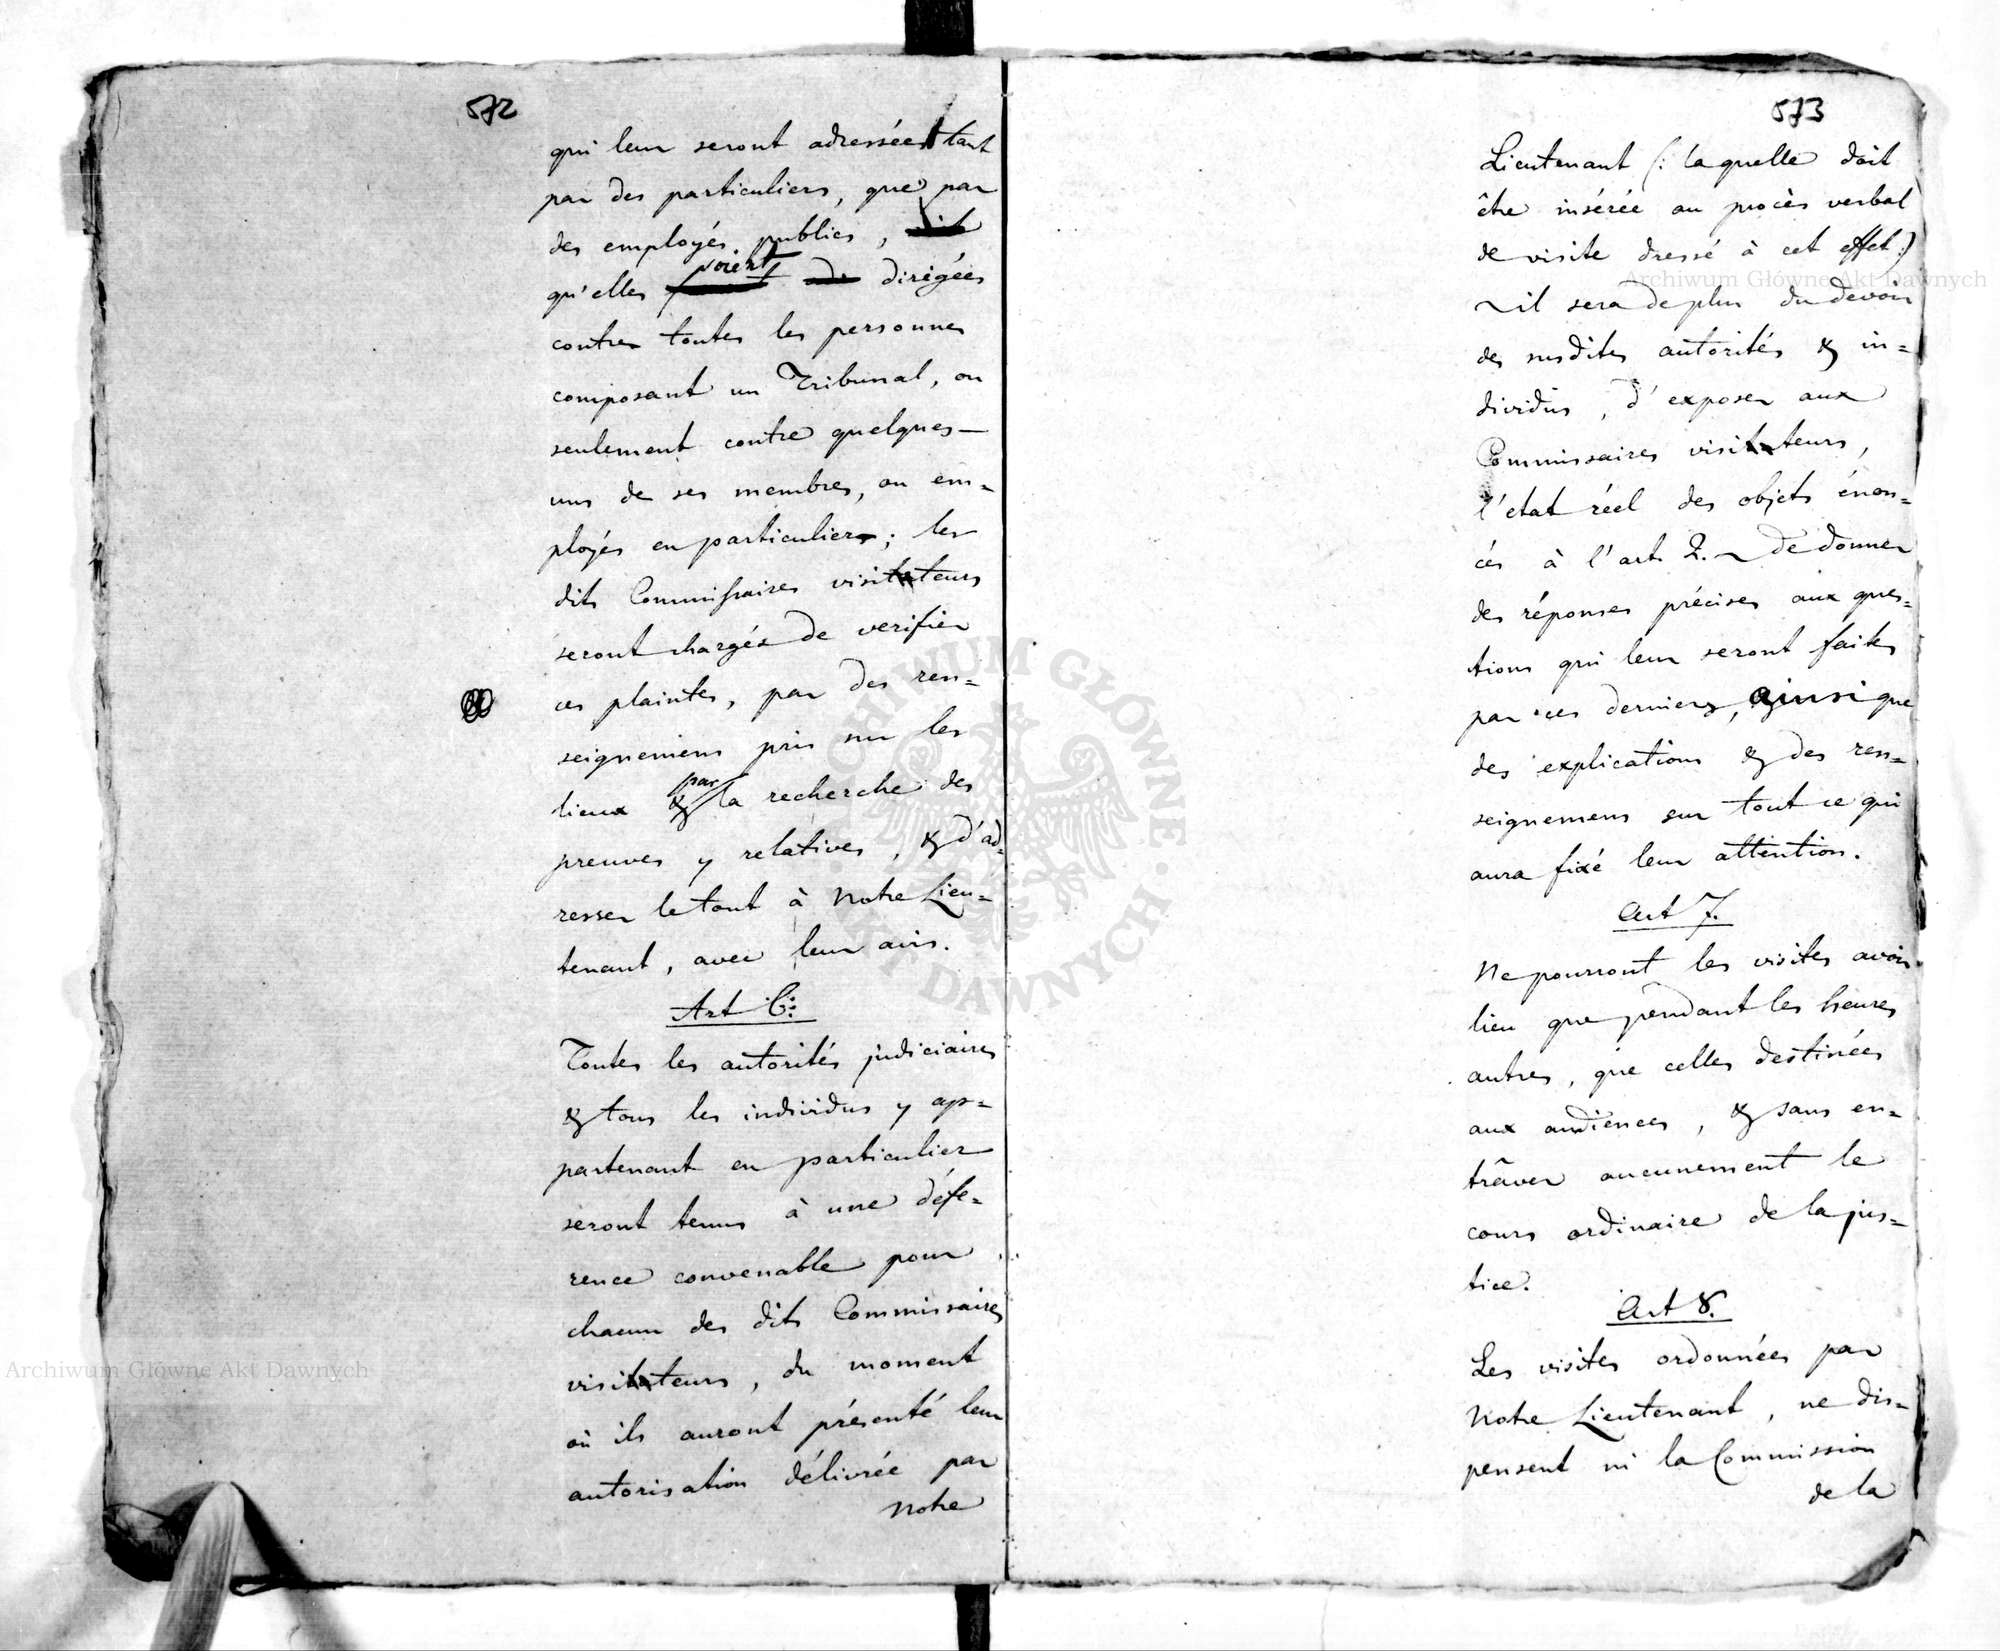 572
qui leur seront adressées tant
par des particuliers, que par
des employés publics,
qu'elles soient dirigées
contre toutes les personnes
composant un Tribunal, ou
seulement contre quelques-
uns de ses membres, ou em=
ployés en particulier; les
dits Commissaires visitateurs
seront chargés de verifier
ces plaintes, par des ren=
seignemens pris sur les
lieux & par la recherche des
preuves y relatives, & d'ad=
resser le tout à Notre Lieu=
tenant, avec leur avis.
Art 6:
Toutes les autorités judiciaires
& tous les individus y ap=
partenant en particulier
seront tenus à une défe=
rence convenable pour
chacun des dits Commissaires
visitateurs, du moment
où ils auront présenté leur
autorisation délivrée par
Notre
573
Lieutenant (: laquelle doit
être insérée au procès verbal
de visite dressé à cet effet :)
~ il sera de plus du devoir
des susdites autorités & in=
dividus, d'exposer aux
Commissaires visitateurs,
l'etat réel des objets énon=
cés à l'art 2. ~ de donner
des réponses précises aux ques=
tions qui leur seront faites
par ces derniers, ainsi que
des explications & des ren=
seignemens sur tout ce qui
aura fixé leur attention.
Art 7.
Ne pourront les visites avoir
lieu que pendant les heures
autres, que celles destinées
aux audiences, & sans en=
trâver aucunement le
cours ordinaire de la jus=
tice.
Art 8.
Les visites ordonnées par
Notre Lieutenant, ne dis=
pensent ni la Commission
de la
Archiwum Główne Akt Dawnych
Archiwum Główne Akt Dawnych
ARCHIWUM GŁÓWNE · AKT DAWNYCH ·